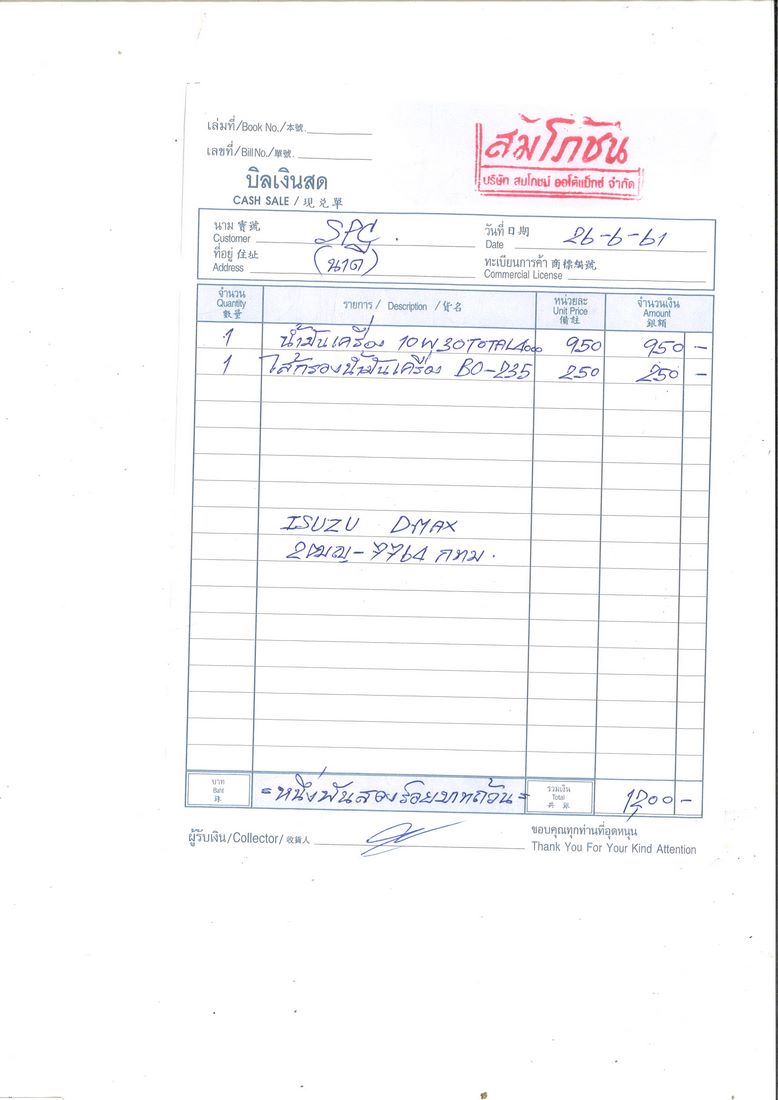 เล่มที่/Book No./本號.
สัมโภชัน
เลขที่/Bill No./單號.
บริษัท สมโภชน์ ออโต้แม็กซ์ จำกัด
บิลเงินสด
CASH SALE / 現兑單
นาม 寶號 Customer SPC. วันที่ 日期 Date 26-6-61
ที่อยู่ 住址 Address (นาดี) ทะเบียนการค้า 商標編號 Commercial License
จำนวน Quantity 數量 รายการ / Description / 貨名 หน่วยละ Unit Price 備註 จำนวนเงิน Amount 銀額
1 น้ำมันเครื่อง 10W30 TOTAL 4000 950 950 -
1 ไส้กรองน้ำมันเครื่อง BO-235 250 250 -
ISUZU D-MAX
7764 กทม.
บาท Baht 銖 = หนึ่งพันสองร้อยบาทถ้วน = รวมเงิน Total 共銀 1200 -
ผู้รับเงิน/Collector/收貨人 ขอบคุณทุกท่านที่อุดหนุน
Thank You For Your Kind Attention